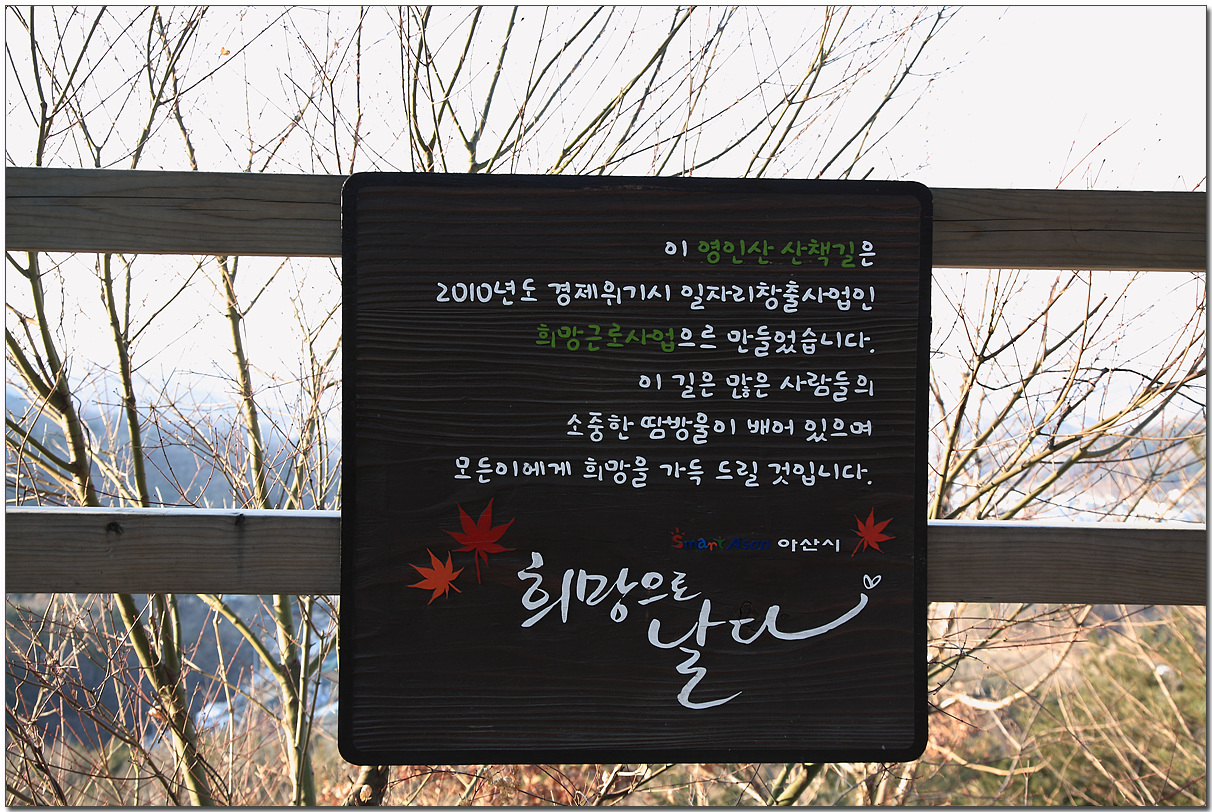 이 영인산 산책길은
2010년도 경제위기시 일자리창출사업인
희망근로사업으르 만들었습니다.
이 길은 많은 사람들의
소중한 땀방울이 배어 있으며
모든이에게 희망을 가득 드릴 것입니다.
Smart Asan 아산시
희망으로
날다